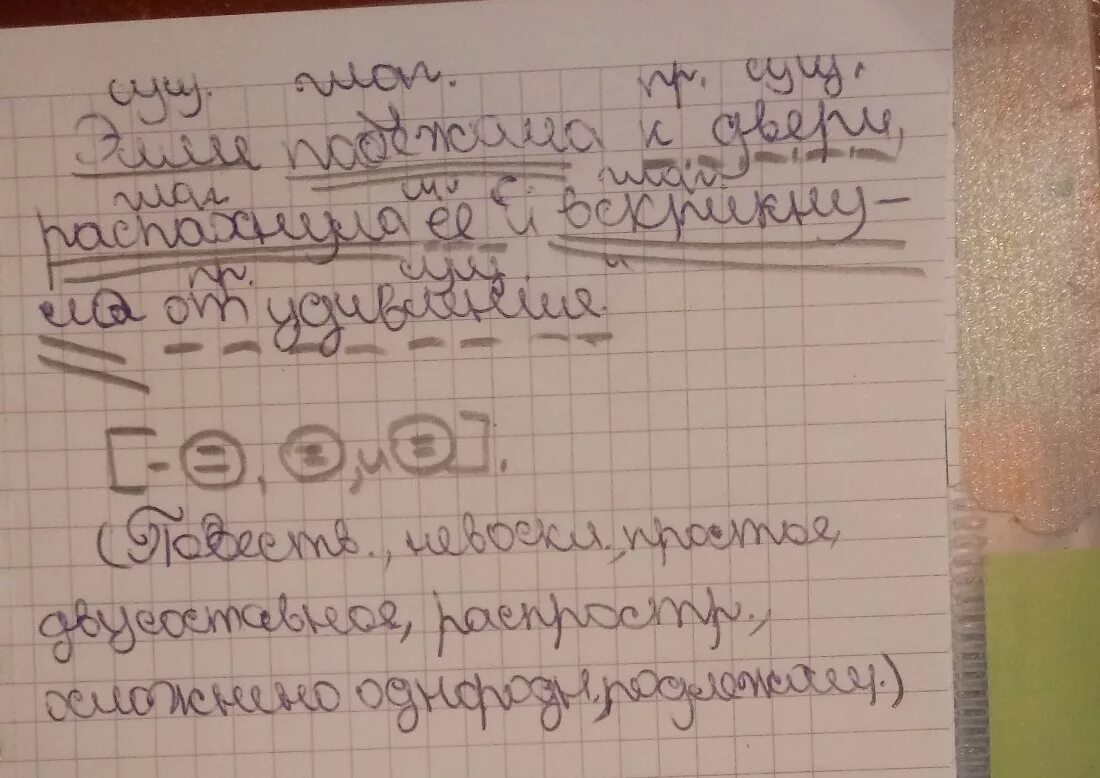 сущ. глаг. пр. сущ.
Элли подбежала к двери,
глаг м. с. глаг
распахнула ее и вскрикну-
пр. сущ.
ла от удивления.
[- =, =, и =].
(Повеств., невоскл., простое,
двусоставное, распростр.,
осложнено однородн. подлежащ.)